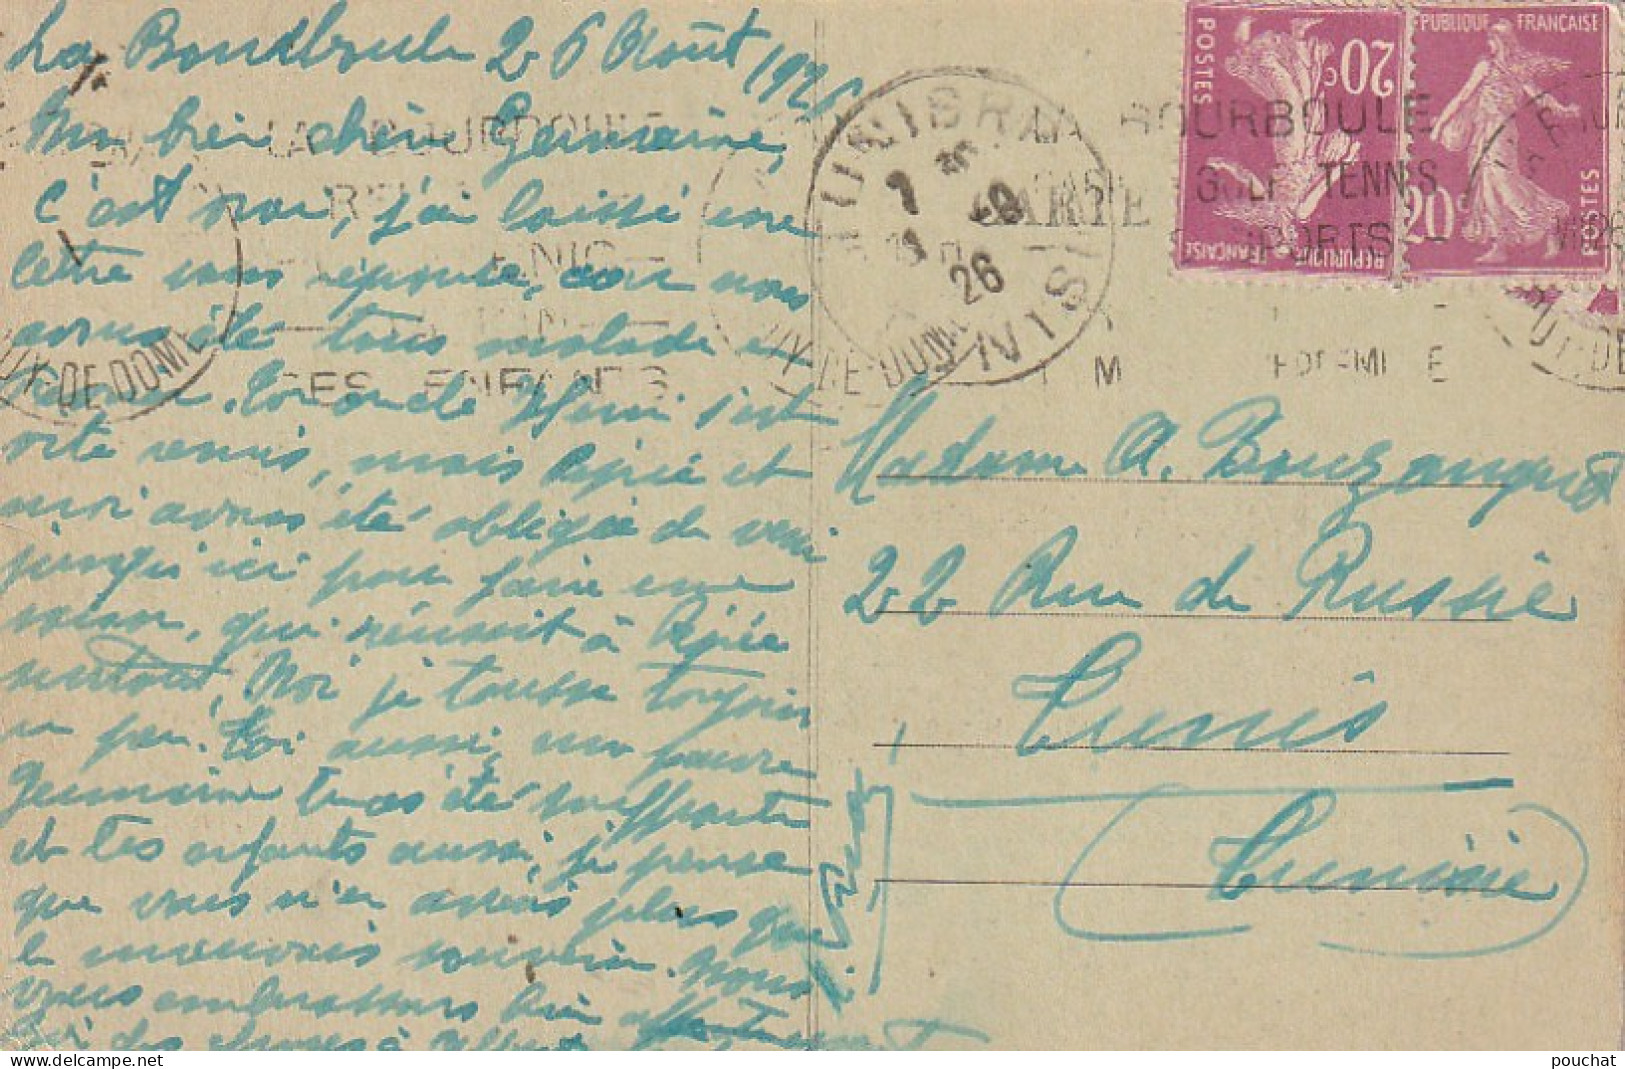 La Bourboule 26 Août 1926
Ma bien chère Germaine,
c'est vrai, j'ai laissé une
lettre sans reponse, car nous
avons été tous malade en
Ton oncle Henri s'est
vite remis, mais Apié et
moi avons été obligée de venir
jusqu'ici pour faire une
saison, qui réussit à
surtout, Moi je tousse toujours
un peu. Toi aussi, ma pauvre
Germaine tu as été souffrante
et tes enfants aussi, je pense
que vous n'en avez plus que
le mauvais souvenir. Nous
vous embrassons bien affectueusement
des choses à Albert
Madame A. Bouzanquet
22 Rue de Russie
Tunis
Tunisie
TUNIS R.P.
TUNISIE
26
LA BOURBOULE
GOLF TENNIS
SPORTS
PUY-DE-DOME
PUY-DE-DOME
LA BOURBOULE
DES ENFANTS
REPUBLIQUE FRANÇAISE
POSTES
20c
REPUBLIQUE FRANÇAISE
POSTES
20c
pouchat